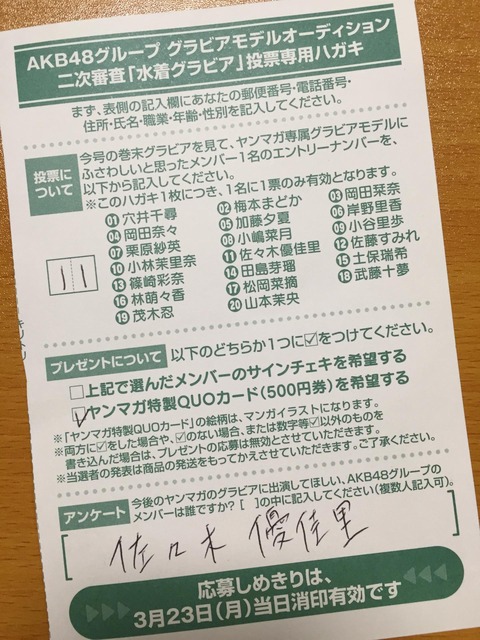 AKB48グループ グラビアモデルオーディション
二次審査「水着グラビア」投票専用ハガキ
まず、表側の記入欄にあなたの郵便番号・電話番号・
住所・氏名・職業・年齢・性別を記入してください。
投票に
ついて
今号の巻末グラビアを見て、ヤンマガ専属グラビアモデルに
ふさわしいと思ったメンバー1名のエントリーナンバーを、
以下から記入してください。
※このハガキ1枚につき、1名に1票のみ有効となります。
01 穴井千尋 02 梅本まどか 03 岡田栞奈
04 岡田奈々 05 加藤夕夏 06 岸野里香
07 栗原紗英 08 小嶋菜月 09 小谷里歩
10 小林茉里奈 11 佐々木優佳里 12 佐藤すみれ
13 篠崎彩奈 14 田島芽瑠 15 土保瑞希
16 林萌々香 17 松岡菜摘 18 武藤十夢
19 茂木忍 20 山本茉央
11
プレゼントについて 以下のどちらか1つに☑をつけてください。
□上記で選んだメンバーのサインチェキを希望する
☑ヤンマガ特製QUOカード(500円券)を希望する
※「ヤンマガ特製QUOカード」の絵柄は、マンガイラストになります。
※両方に☑をした場合や、☑のない場合、または数字等☑以外のものを
書き込んだ場合は、プレゼントの応募は無効とさせていただきます。
※当選者の発表は商品の発送をもってかえさせていただきます。ご了承ください。
アンケート 今後のヤンマガのグラビアに出演してほしい、AKB48グループの
メンバーは誰ですか?[ ]の中に記入してください(複数人記入可)。
[佐々木 優佳里]
応募しめきりは、
3月23日(月)当日消印有効です